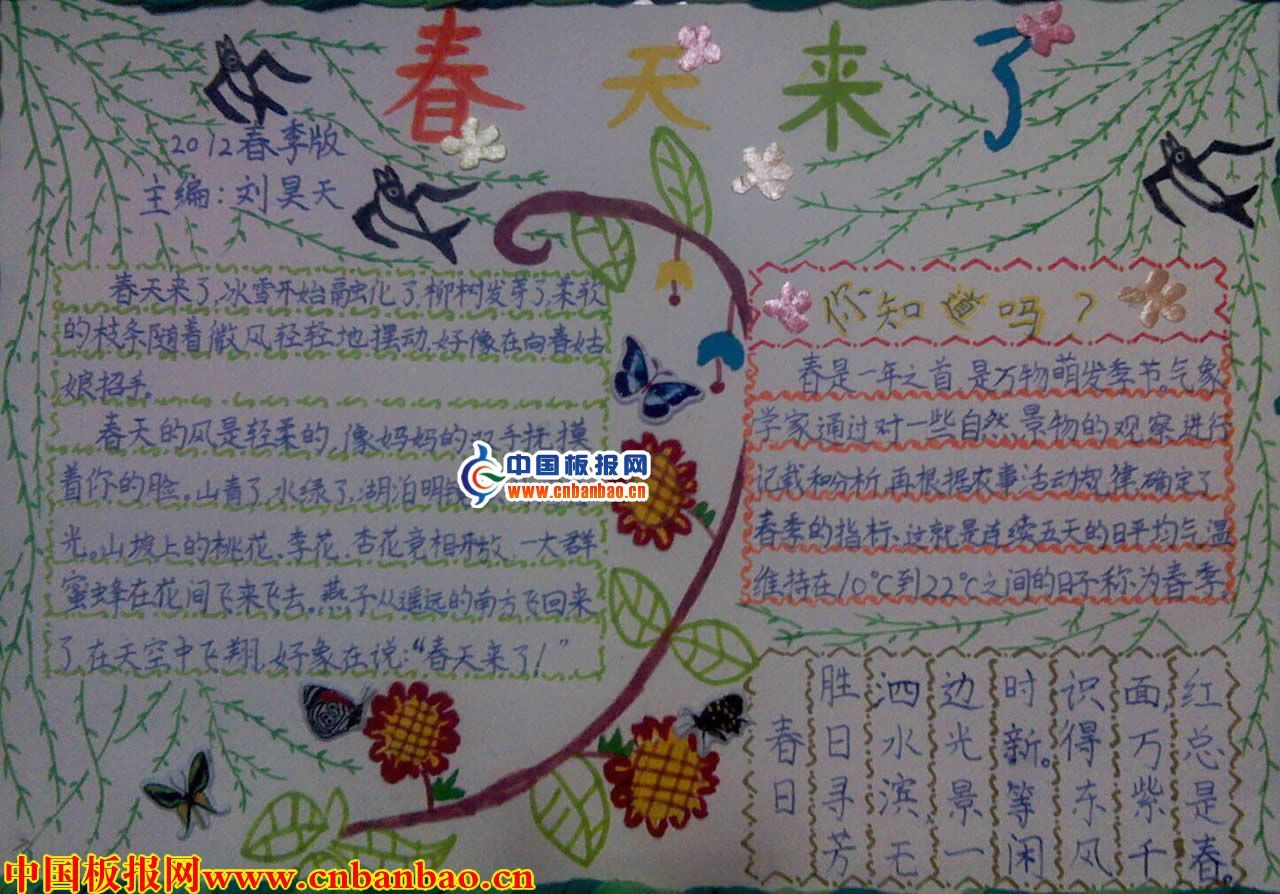 春天来了
2012春季版
主编:刘昊天
春天来了,冰雪开始融化了,柳树发芽了,柔软
的枝条随着微风轻轻地摆动,好像在向春姑
娘招手。
春天的风是轻柔的,像妈妈的双手抚摸
着你的脸。山青了,水绿了,湖泊明
光。山坡上的桃花、李花、杏花竟相开放,一大群
蜜蜂在花间飞来飞去。燕子从遥远的南方飞回来
了,在天空中飞翔,好象在说:“春天来了!”
中国板报网
www.cnbanbao.cn
你知道吗?
春是一年之首,是万物萌发季节。气象
学家通过对一些自然、景物的观察进行
记载和分析,再根据农事活动规律,确定了
春季的指标,这就是连续五天的日平均气温
维持在10℃到22℃之间的日子称为春季。
春日
胜日寻芳
泗水滨,无
边光景一
时新。等闲
识得东风
面,万紫千
红总是春。
中国板报网www.cnbanbao.cn